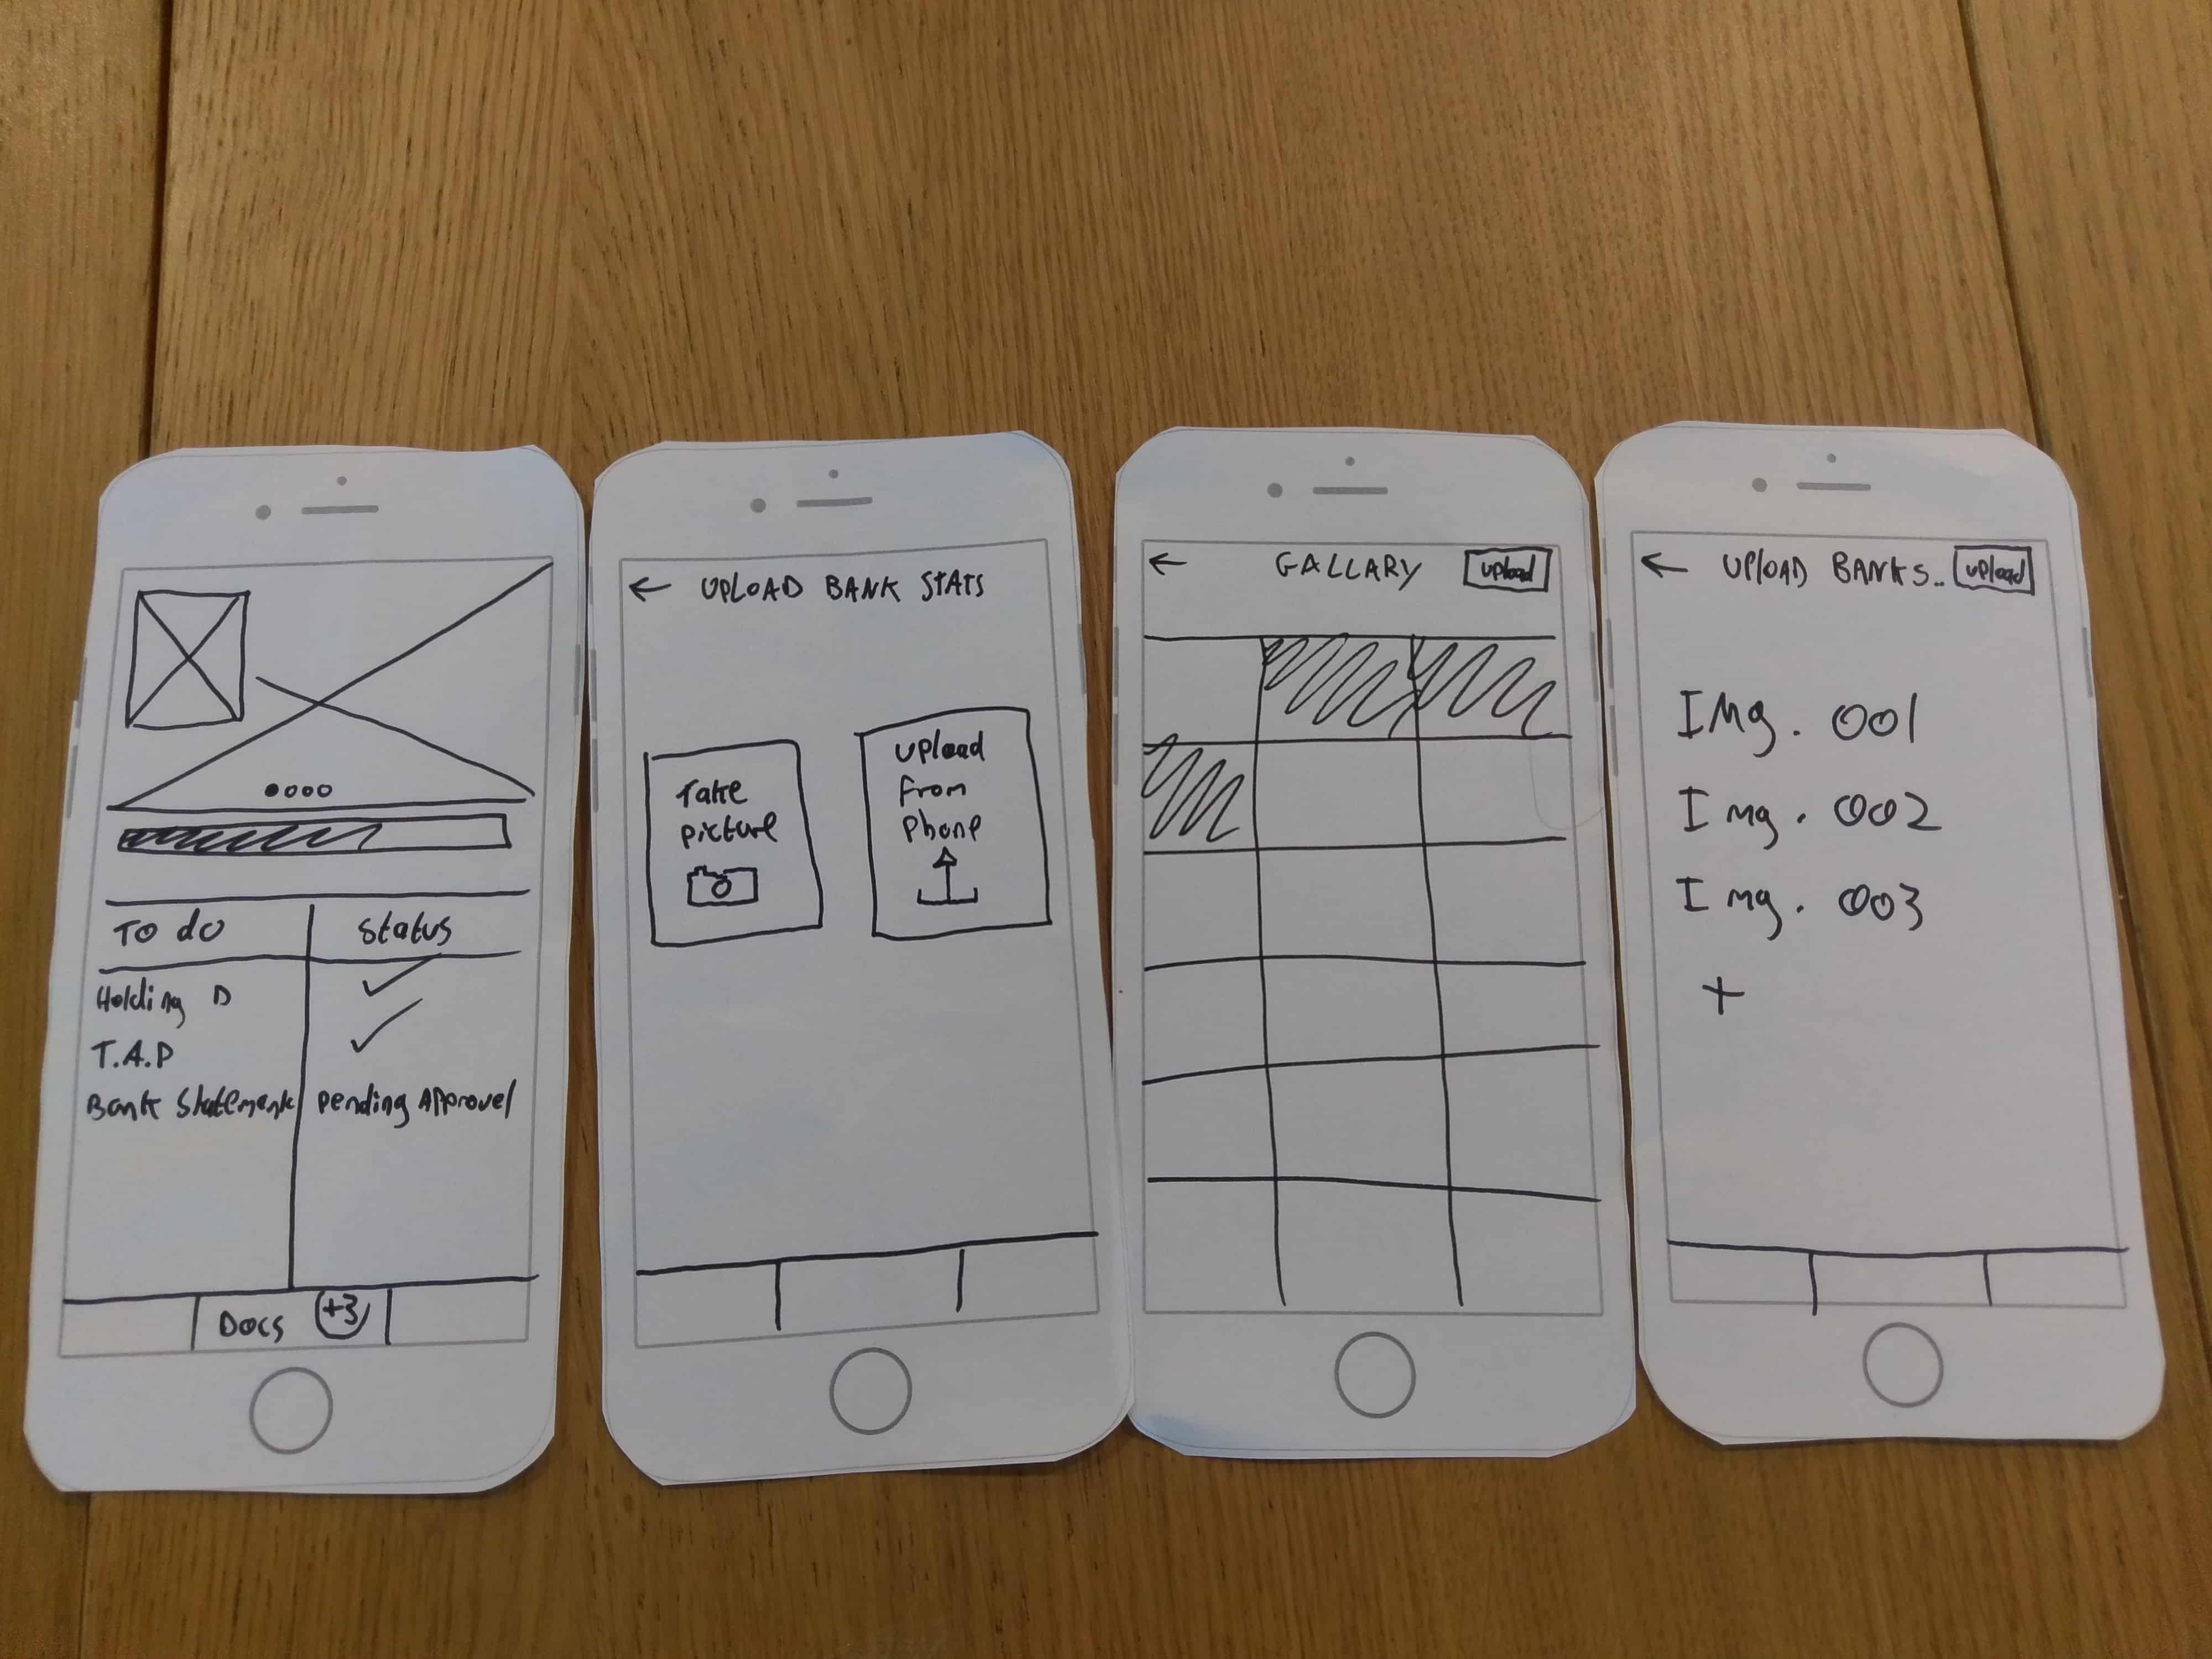 To do Status
Holding D
T.A.P
Bank Statement Pending Approvel
Docs +3
← UPLOAD BANK STATS
Take
picture
Upload
from
Phone
← GALLARY upload
← UPLOAD BANKS.. upload
IMg. 001
Img. 002
Img. 003
+